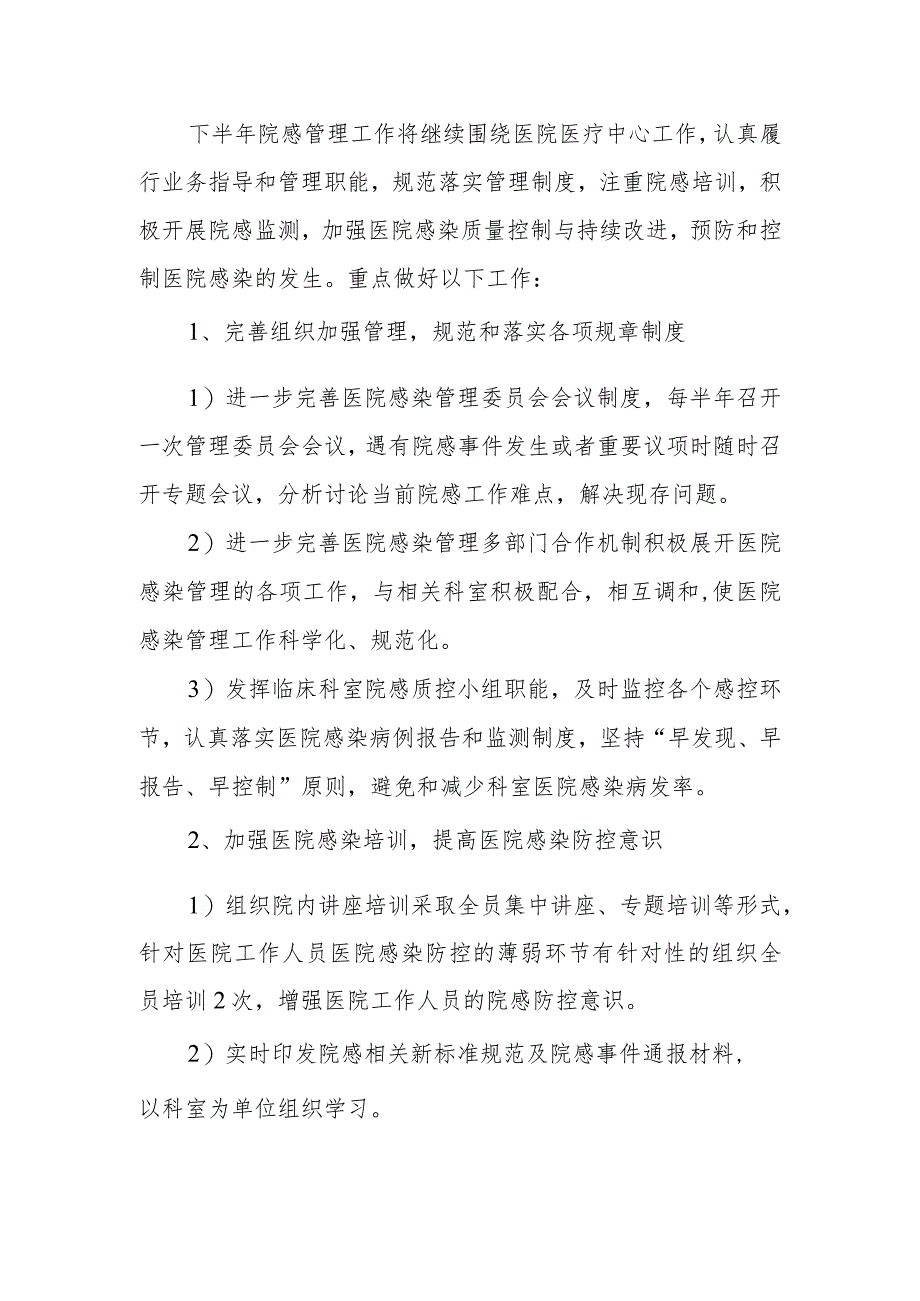 下半年院感管理工作将继续围绕医院医疗中心工作，认真履
行业务指导和管理职能，规范落实管理制度，注重院感培训，积
极开展院感监测，加强医院感染质量控制与持续改进，预防和控
制医院感染的发生。重点做好以下工作：
1、完善组织加强管理，规范和落实各项规章制度
1）进一步完善医院感染管理委员会会议制度，每半年召开
一次管理委员会会议，遇有院感事件发生或者重要议项时随时召
开专题会议，分析讨论当前院感工作难点，解决现存问题。
2）进一步完善医院感染管理多部门合作机制积极展开医院
感染管理的各项工作，与相关科室积极配合，相互调和,使医院
感染管理工作科学化、规范化。
3）发挥临床科室院感质控小组职能，及时监控各个感控环
节，认真落实医院感染病例报告和监测制度，坚持“早发现、早
报告、早控制”原则，避免和减少科室医院感染病发率。
2、加强医院感染培训，提高医院感染防控意识
1）组织院内讲座培训采取全员集中讲座、专题培训等形式，
针对医院工作人员医院感染防控的薄弱环节有针对性的组织全
员培训2次，增强医院工作人员的院感防控意识。
2）实时印发院感相关新标准规范及院感事件通报材料，
以科室为单位组织学习。